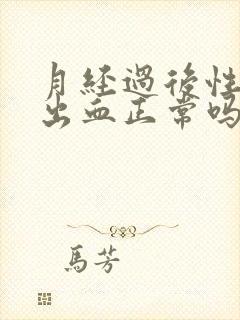 月經過後性
出血正常嗎
馬芳